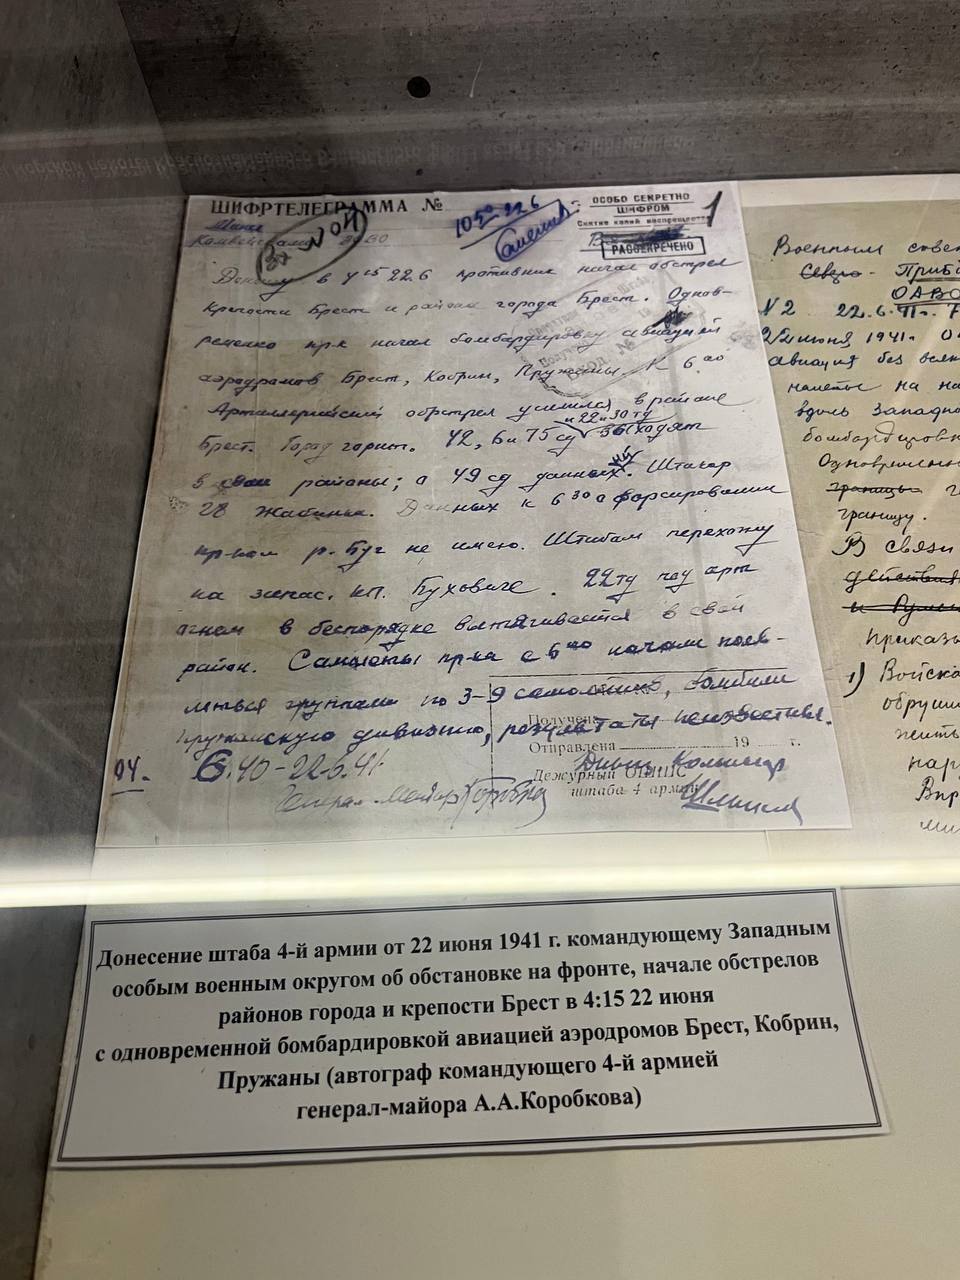 ШИФРТЕЛЕГРАММА №
ОСОБО СЕКРЕТНО
ШИФРОМ
Снятие копий воспрещается
1
РАССЕКРЕЧЕНО
Доношу в 4¹⁵ 22.6 противник начал обстрел
крепости Брест и района города Брест. Однов-
ременно пр-к начал бомбардировку авиацией
аэродромов Брест, Кобрин, Пружаны. К 6.⁰⁰
Артиллерийский обстрел усилился в районе
и 22 и 30 тд
Брест. Город горит. 42, 6 и 75 сд выходят
в свои районы; о 49 сд данных нет. Штакор
28 Жабинка. Данных к 6³⁰ о форсировании
пр-ком р. Буг не имею. Штабам перехожу
на запас. кп. Буховиче. 22 тд под арт
огнем в беспорядке вытягивается в свой
район. Самолеты пр-ка с 6⁰⁰ начали появ-
ляться группами по 3-9 самолетов, бомбили
пружанскую дивизию, результаты неизвестны.
Получена
Отправлена 19 г.
Дежурный
штаба 4 армии
04.
6.40-22.6.41
Генерал-майор Коробков
Военным
Северо- Приб
ОАВО
N 2 22.6.41г. 7
22 июня 1941г. 0
авиация без
налеты на
вдоль Западно
бомбардировк
Одновременно
границы
границу.
В связи
действия
и Рум
Приказы
1) Войска
обруши
нар
Донесение штаба 4-й армии от 22 июня 1941 г. командующему Западным
особым военным округом об обстановке на фронте, начале обстрелов
районов города и крепости Брест в 4:15 22 июня
с одновременной бомбардировкой авиацией аэродромов Брест, Кобрин,
Пружаны (автограф командующего 4-й армией
генерал-майора А.А.Коробкова)